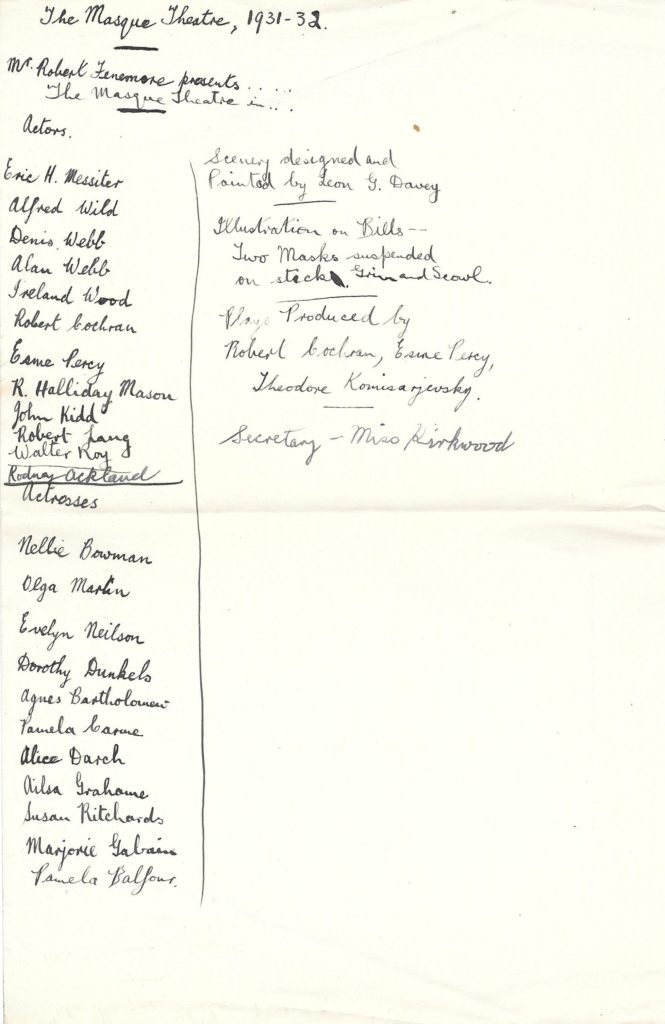 The Masque Theatre, 1931-32.
Mr. Robert Fenemore presents....
The Masque Theatre in...
Actors.
Eric H. Messiter
Alfred Wild
Denis Webb
Alan Webb
Ireland Wood
Robert Cochran
Esme Percy
R. Halliday Mason
John Kidd
Robert Lang
Walter Roy
Rodney Ackland
Actresses
Nellie Bowman
Olga Martin
Evelyn Neilson
Dorothy Dunkels
Agnes Bartholomew
Pamela Carme
Alice Darch
Ailsa Grahame
Susan Ritchards
Marjorie Gabain
Pamela Balfour.
Scenery designed and
Painted by Leon G. Davey
Illustration on Bills--
Two Masks suspended
on stick. Grin and Scowl.
Plays Produced by
Robert Cochran, Esme Percy,
Theodore Komisarjevsky.
Secretary - Miss Kirkwood